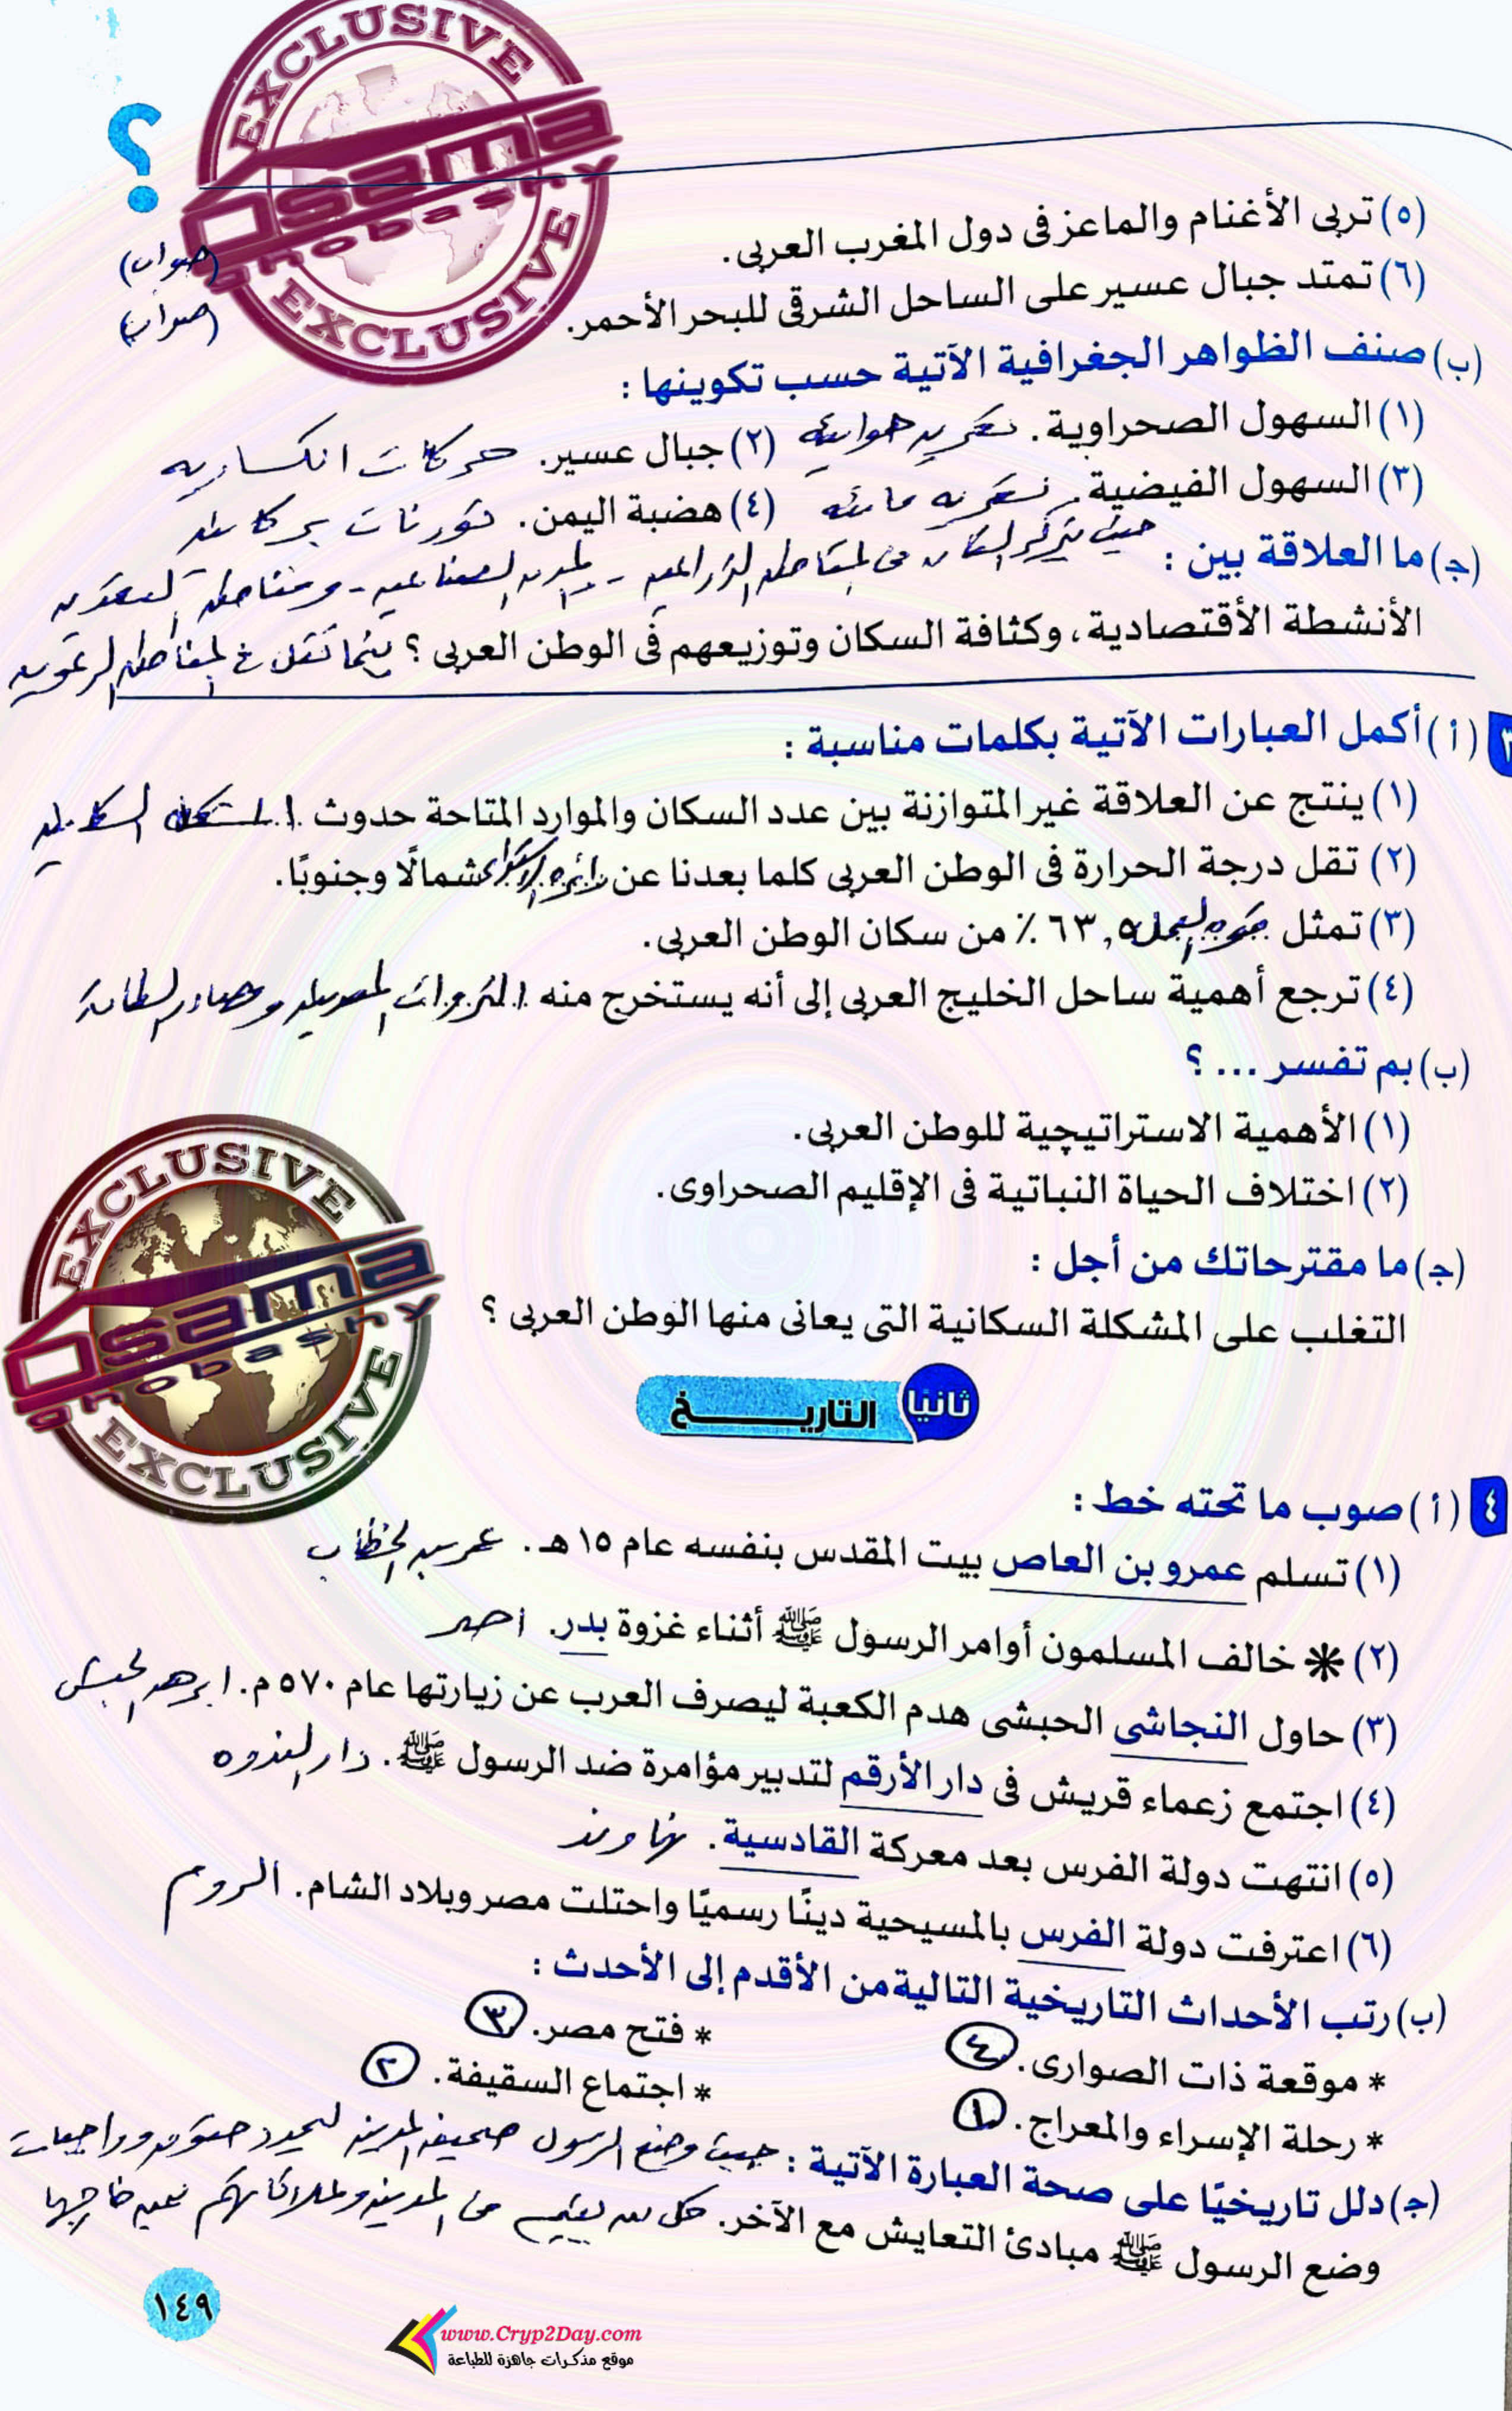 EXCLUSIVE
Osama
ghobashy
EXCLUSIVE
؟
(٥) تربى الأغنام والماعز فى دول المغرب العربى. (صواب)
(٦) تمتد جبال عسير على الساحل الشرقى للبحر الأحمر. (صواب)
(ب) صنف الظواهر الجغرافية الآتية حسب تكوينها :
(١) السهول الصحراوية. تعرية هوائية (٢) جبال عسير. حركات انكسارية
(٣) السهول الفيضية. تعرية مائية (٤) هضبة اليمن. ثورنات بركانية
(ج) ما العلاقة بين : حيث يتركز السكان فى المناطق الزراعية - المدن الصناعية - ومناطق التعدين
الأنشطة الأقتصادية، وكثافة السكان وتوزيعهم فى الوطن العربى ؟ بينما تقل فى المناطق الرعوية
٣ (أ) أكمل العبارات الآتية بكلمات مناسبة :
(١) ينتج عن العلاقة غير المتوازنة بين عدد السكان والموارد المتاحة حدوث المشكلة السكانية
(٢) تقل درجة الحرارة فى الوطن العربى كلما بعدنا عن دائرة الاستواء شمالًا وجنوبًا.
(٣) تمثل قوة العمل ٦٣,٥ ٪ من سكان الوطن العربى.
(٤) ترجع أهمية ساحل الخليج العربى إلى أنه يستخرج منه الثروات المعدنية ومصادر الطاقة
(ب) بم تفسر ... ؟
(١) الأهمية الاستراتيچية للوطن العربى.
(٢) اختلاف الحياة النباتية فى الإقليم الصحراوى.
(ج) ما مقترحاتك من أجل :
التغلب على المشكلة السكانية التى يعانى منها الوطن العربى ؟
EXCLUSIVE
Osama
ghobashy
EXCLUSIVE
ثانيًا التاريــــخ
٤ (أ) صوب ما تحته خط :
(١) تسلم عمرو بن العاص بيت المقدس بنفسه عام ١٥ هـ. عمر بن الخطاب
(٢) * خالف المسلمون أوامر الرسول ﷺ أثناء غزوة بدر. احد
(٣) حاول النجاشى الحبشى هدم الكعبة ليصرف العرب عن زيارتها عام ٥٧٠ م. ابرهه الحبشى
(٤) اجتمع زعماء قريش فى دار الأرقم لتدبير مؤامرة ضد الرسول ﷺ. دار الندوه
(٥) انتهت دولة الفرس بعد معركة القادسية. نهاوند
(٦) اعترفت دولة الفرس بالمسيحية دينًا رسميًا واحتلت مصر وبلاد الشام. الروم
(ب) رتب الأحداث التاريخية التالية من الأقدم إلى الأحدث :
* موقعة ذات الصوارى. ٤ * فتح مصر. ٣
* رحلة الإسراء والمعراج. ١ * اجتماع السقيفة. ٢
(ج) دلل تاريخيًا على صحة العبارة الآتية : حيث وضع الرسول صحيفة المدينة ليحدد حقوق وواجبات
وضع الرسول ﷺ مبادئ التعايش مع الآخر. كل من يقيم فى المدينة وعلاقاتهم بمن خارجها
١٤٩
www.Cryp2Day.com
موقع مذكرات جاهزة للطباعة